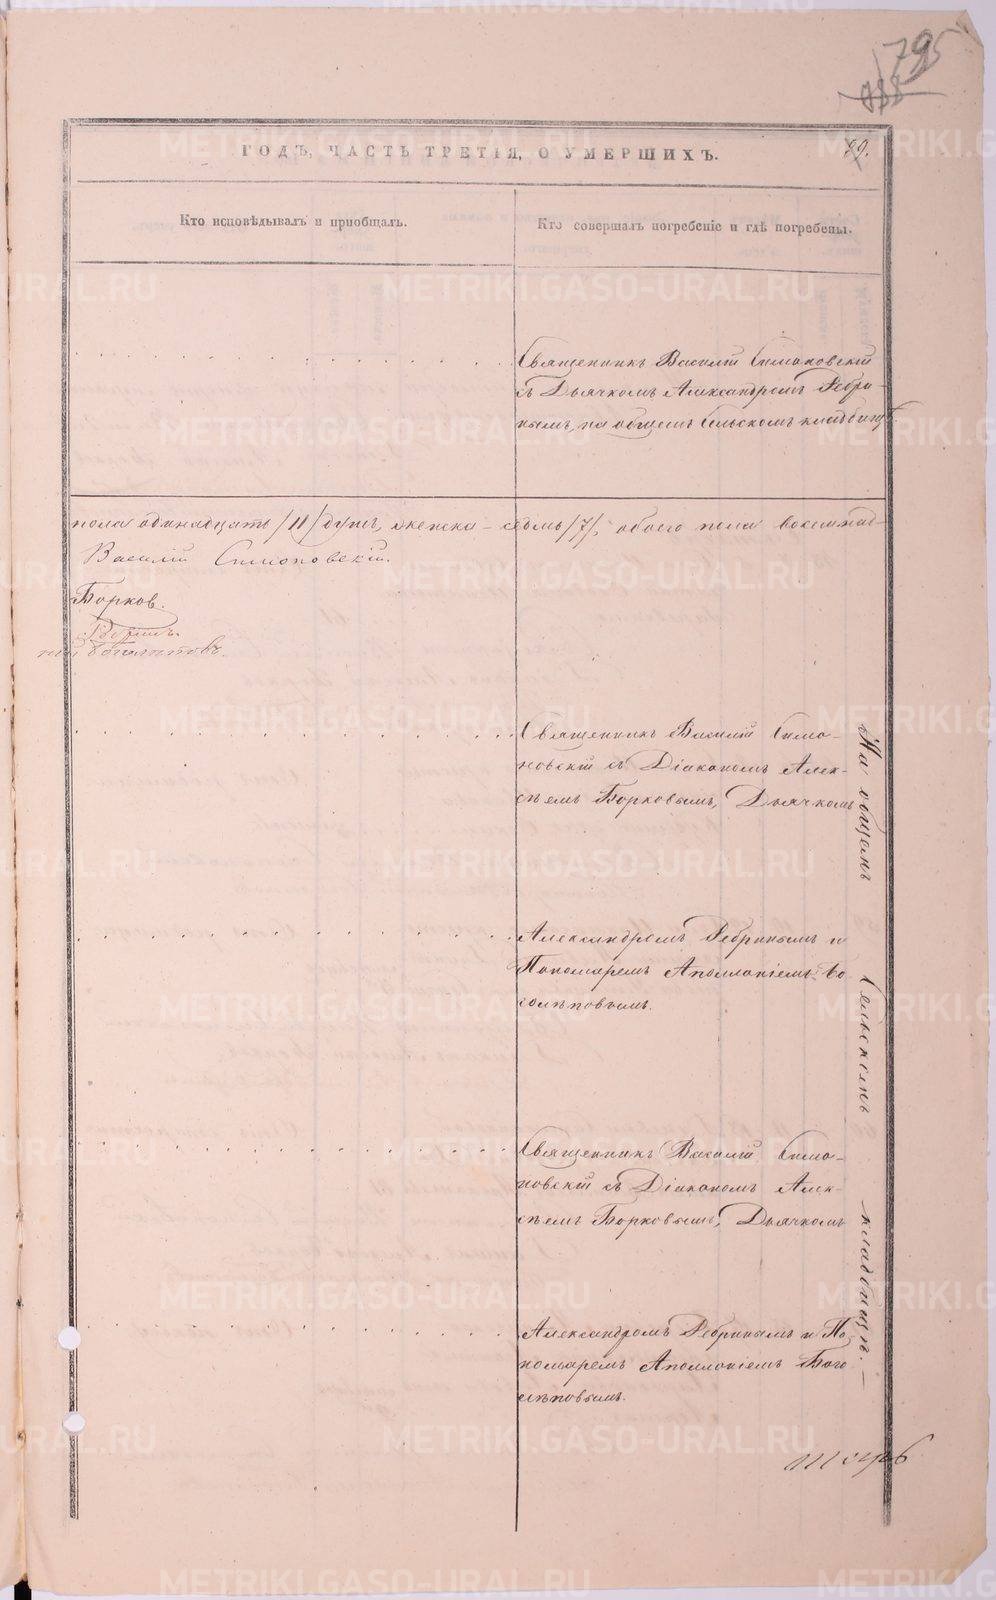 795
788
ГОДЪ, ЧАСТЬ ТРЕТІЯ, О УМЕРШИХЪ.
99.
Кто исповѣдывалъ и пріобщалъ.
Кто совершалъ погребеніе и гдѣ погребены.
Священникъ Василій Симоновскій
съ Дьячкомъ Александромъ Ребри-
нымъ, на общемъ Сельскомъ кладбищѣ.
пола одинадцать /11/ душъ, женска – седмь /7/, обоего пола восемнад-
Василій Симоновскій.
Борковъ.
Священникъ Василій Симо-
новскій съ Діакономъ Алек-
сѣемъ Борковымъ, Дьячкомъ
Александромъ Ребринымъ и
Пономаремъ Аполлоніемъ Бо-
голѣповымъ.
Священникъ Василій Симо-
новскій съ Діакономъ Алек-
сѣемъ Борковымъ, Дьячкомъ
Александромъ Ребринымъ и По-
номаремъ Аполлоніемъ Бого
лѣповымъ.
На общемъ Сельскомъ кладбищѣ.
METRIKI.GASO-URAL.RU